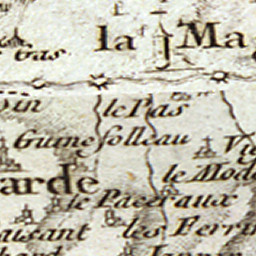 la Ma
Gas
in
le Pas
Gumefolleau
Vi
le Mode
arde
le Paeraux
ausant
les Ferrin